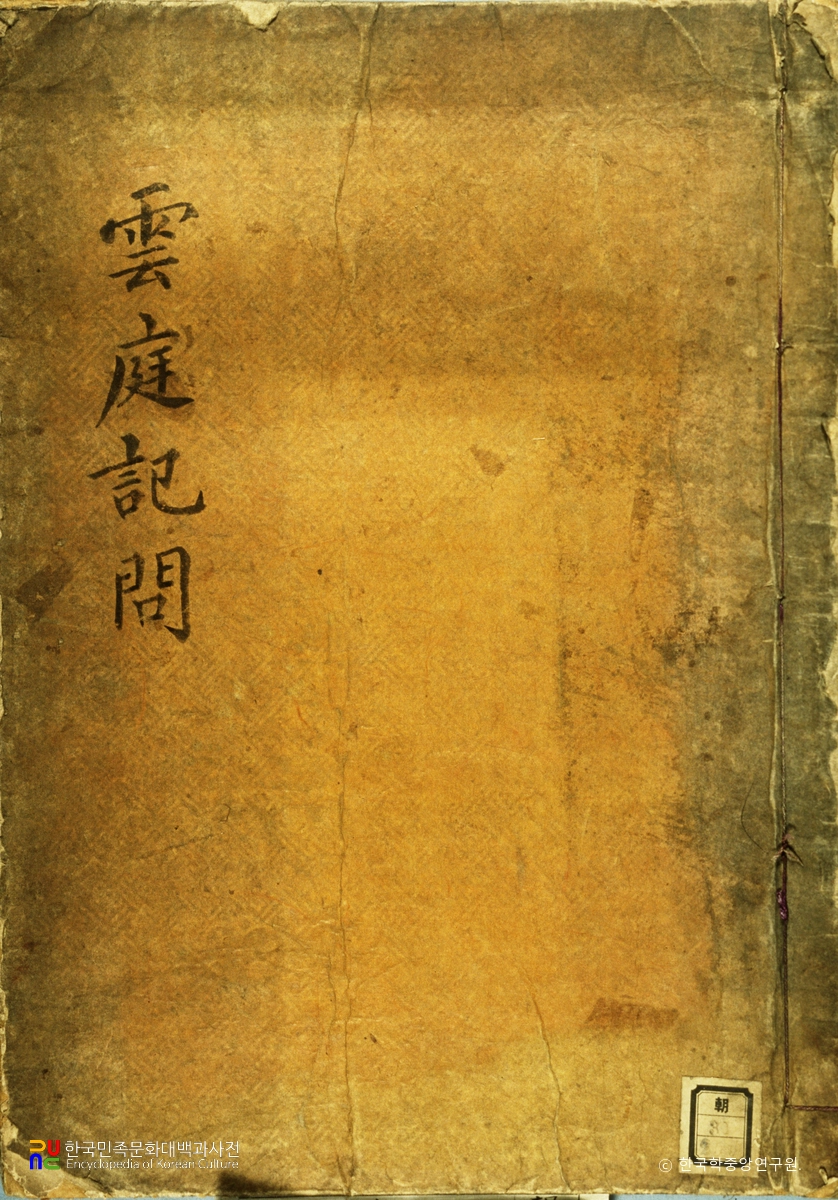 雲庭記問
朝
한국민족문화대백과사전
Encyclopedia of Korean Culture
© 한국학중앙연구원